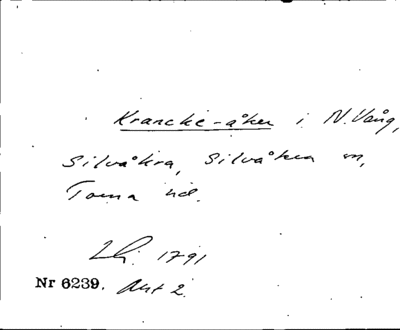 Krancke-åker i N. Vång,
Silvåkra, Silvåkra sn,
Torna hd.
1791
Nr 6239. Akt 2.